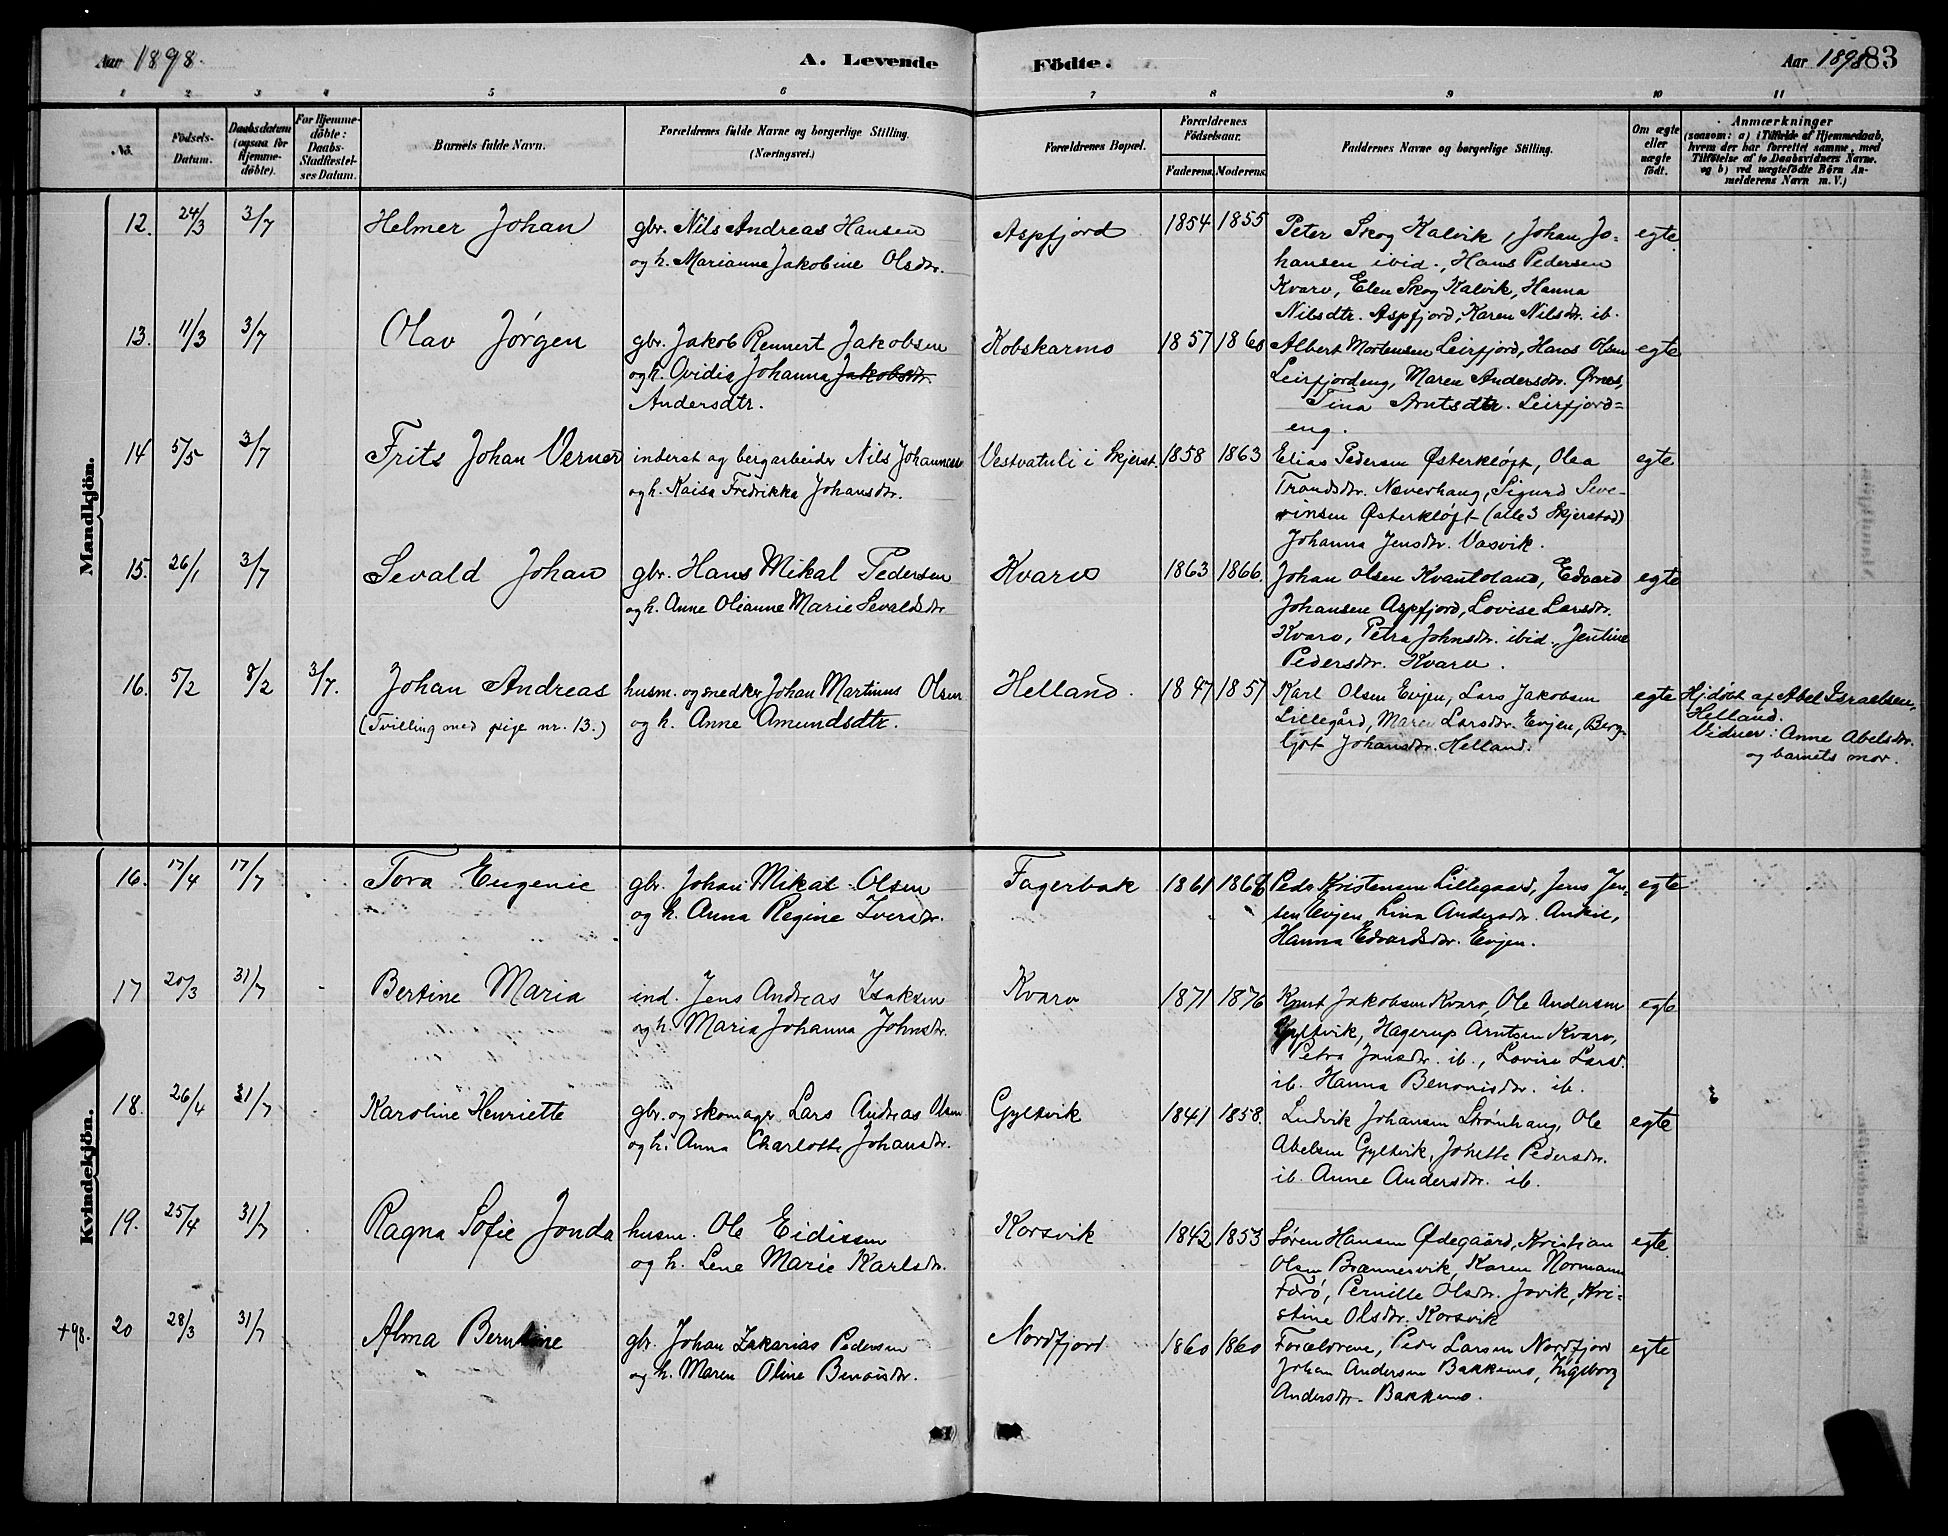 Aar 1898. A. Levende Födte. Aar 1898 83
1 2 3 4 5 6 7 8 9 10 11
No. Födsels-Datum. Daabsdatum (ogsaa for Hjemmedöbte). For Hjemmedöbte: Daabs-Stadfæstelses Datum. Barnets fulde Navn. Forældrenes fulde Navne og borgerlige Stilling. (Næringsvei.) Forældrenes Bopæl. Forældrenes Födselsaar. Faderens. Moderens. Faddernes Navne og borgerlige Stilling. Om ægte eller uægte födt. Anmærkninger
(saasom: a) i Tilfælde af Hjemmedaab,
hvem der har forrettet samme, med
Tilföielse af to Daabsvidners Navne.
og b) ved uægtefödte Börn An-
melderens Navn m. V.)
Mandkjön.
12. 24/3 3/7 Helmer Johan
gbr. Nils Andreas Hansen
og h. Marianne Jakobine Olsdtr.
Aspfjord 1854 1855
Peter Skog Kalvik, Johan Jo-
hansen ibid., Hans Pedersen
Kvarv, Elen Skog Kalvik, Hanna
Nilsdtr. Aspfjord, Karen Nilsdtr. ib.
egte
13. 11/3 3/7 Olav Jørgen
gbr. Jakob Rennert Jakobsen
og h. Ovidia Johanna Jakobsdtr.
Andersdtr.
Kobskarmo 1857 1860
Albert Mortensen Leirfjord, Hans Olsen
Leirfjordeng, Maren Andersdtr. Ørnes,
Tina Arntsdtr. Leirfjord=
eng.
egte
14 5/5 3/7 Frits Johan Verner
inderst og bergarbeider Nils Johannesen
og h. Kaisa Fredrikka Johansdtr.
Vestvatnli i Skjerst. 1858 1863
Elias Pedersen Østerkløft, Olea
Trondsdtr. Næverhaug, Sigurd Seve-
rinsen Østerkløft (alle 3 Skjerstad)
Johanna Jensdtr. Vasvik.
egte
15. 26/1 3/7 Sevald Johan
gbr. Hans Mikal Pedersen
og h. Anne Olianne Marie Sevaldsdtr
Kvarv 1863 1866.
Johan Olsen Kvantoland, Edvard
Johansen Aspfjord, Lovise Larsdtr.
Kvarv, Petra Johnsdtr. ibid., Jentine
Pedersdtr. Kvarv.
egte
16. 5/2 8/2 3/7. Johan Andreas
(Tvilling med pige nr. 13.)
husm. og snedker Johan Martinus Olsen
og h. Anne Amundsdtr.
Helland. 1847 1857
Karl Olsen Evjen, Lars Jakobsen
Lillegård, Maren Larsdtr. Evjen, Berg-
ljot Johansdtr. Helland.
egte
Hj.døbt af Abel Israelsen,
Helland.
Vidner: Anne Abelsdtr.
og barnets mor.
Kvindekjön.
16. 17/4 17/7 Tora Eugenie
gbr. Johan Mikal Olsen
og h. Anna Regine Iversdtr.
Fagerbak 1861
Peder Kristensen Lillegaard, Jens Jen-
sen Evjen, Lina Andersdtr.
Hanna Edvardsdtr. Evjen.
egte
17 20/3 31/7 Bertine Maria
ind. Jens Andreas Isaksen
og h. Maria Johanna Johnsdtr.
Kvarv 1871 1876
Knut Jakobsen Kvarv, Ole Andersen
Gyltvik, Hagerup Arntsen Kvarv,
Petra Jonsdtr. ib., Lovise Larsd.
ib. Hanna Benonisdtr. ib.
egte
18. 26/4 31/7 Karoline Henriette
gbr. og skomager Lars Andreas Olsen
og h. Anna Charlotte Johansdtr.
Gyltvik 1841 1858.
Ludvik Johansen Strømhaug, Ole
Abelsen Gyltvik, Johette Pedersdtr.
ib. Anne Andersdtr. ib.
egte
19. 25/4 31/7 Ragna Sofie Jonda
husm. Ole Eidissen
og h. Lene Marie Karlsdtr.
Korsvik 1842 1853
Søren Hansen Ødegaard, Kristian
Olsen Brennesvik, Karen Normann
Førø, Pernille Olsdtr. Jovik, Kri-
stine Olsdtr. Korsvik
egte
+98. 20 28/3 31/7 Alma Berntine
gbr. Johan Zakarias Pedersen
og h. Maren Oline Benonisdtr.
Nordfjord 1860 1860
Forældrene, Peder Larsen Nordfjord
Johan Andersen Bakkemo, Ingeborg
Andersdtr. Bakkemo.
egte